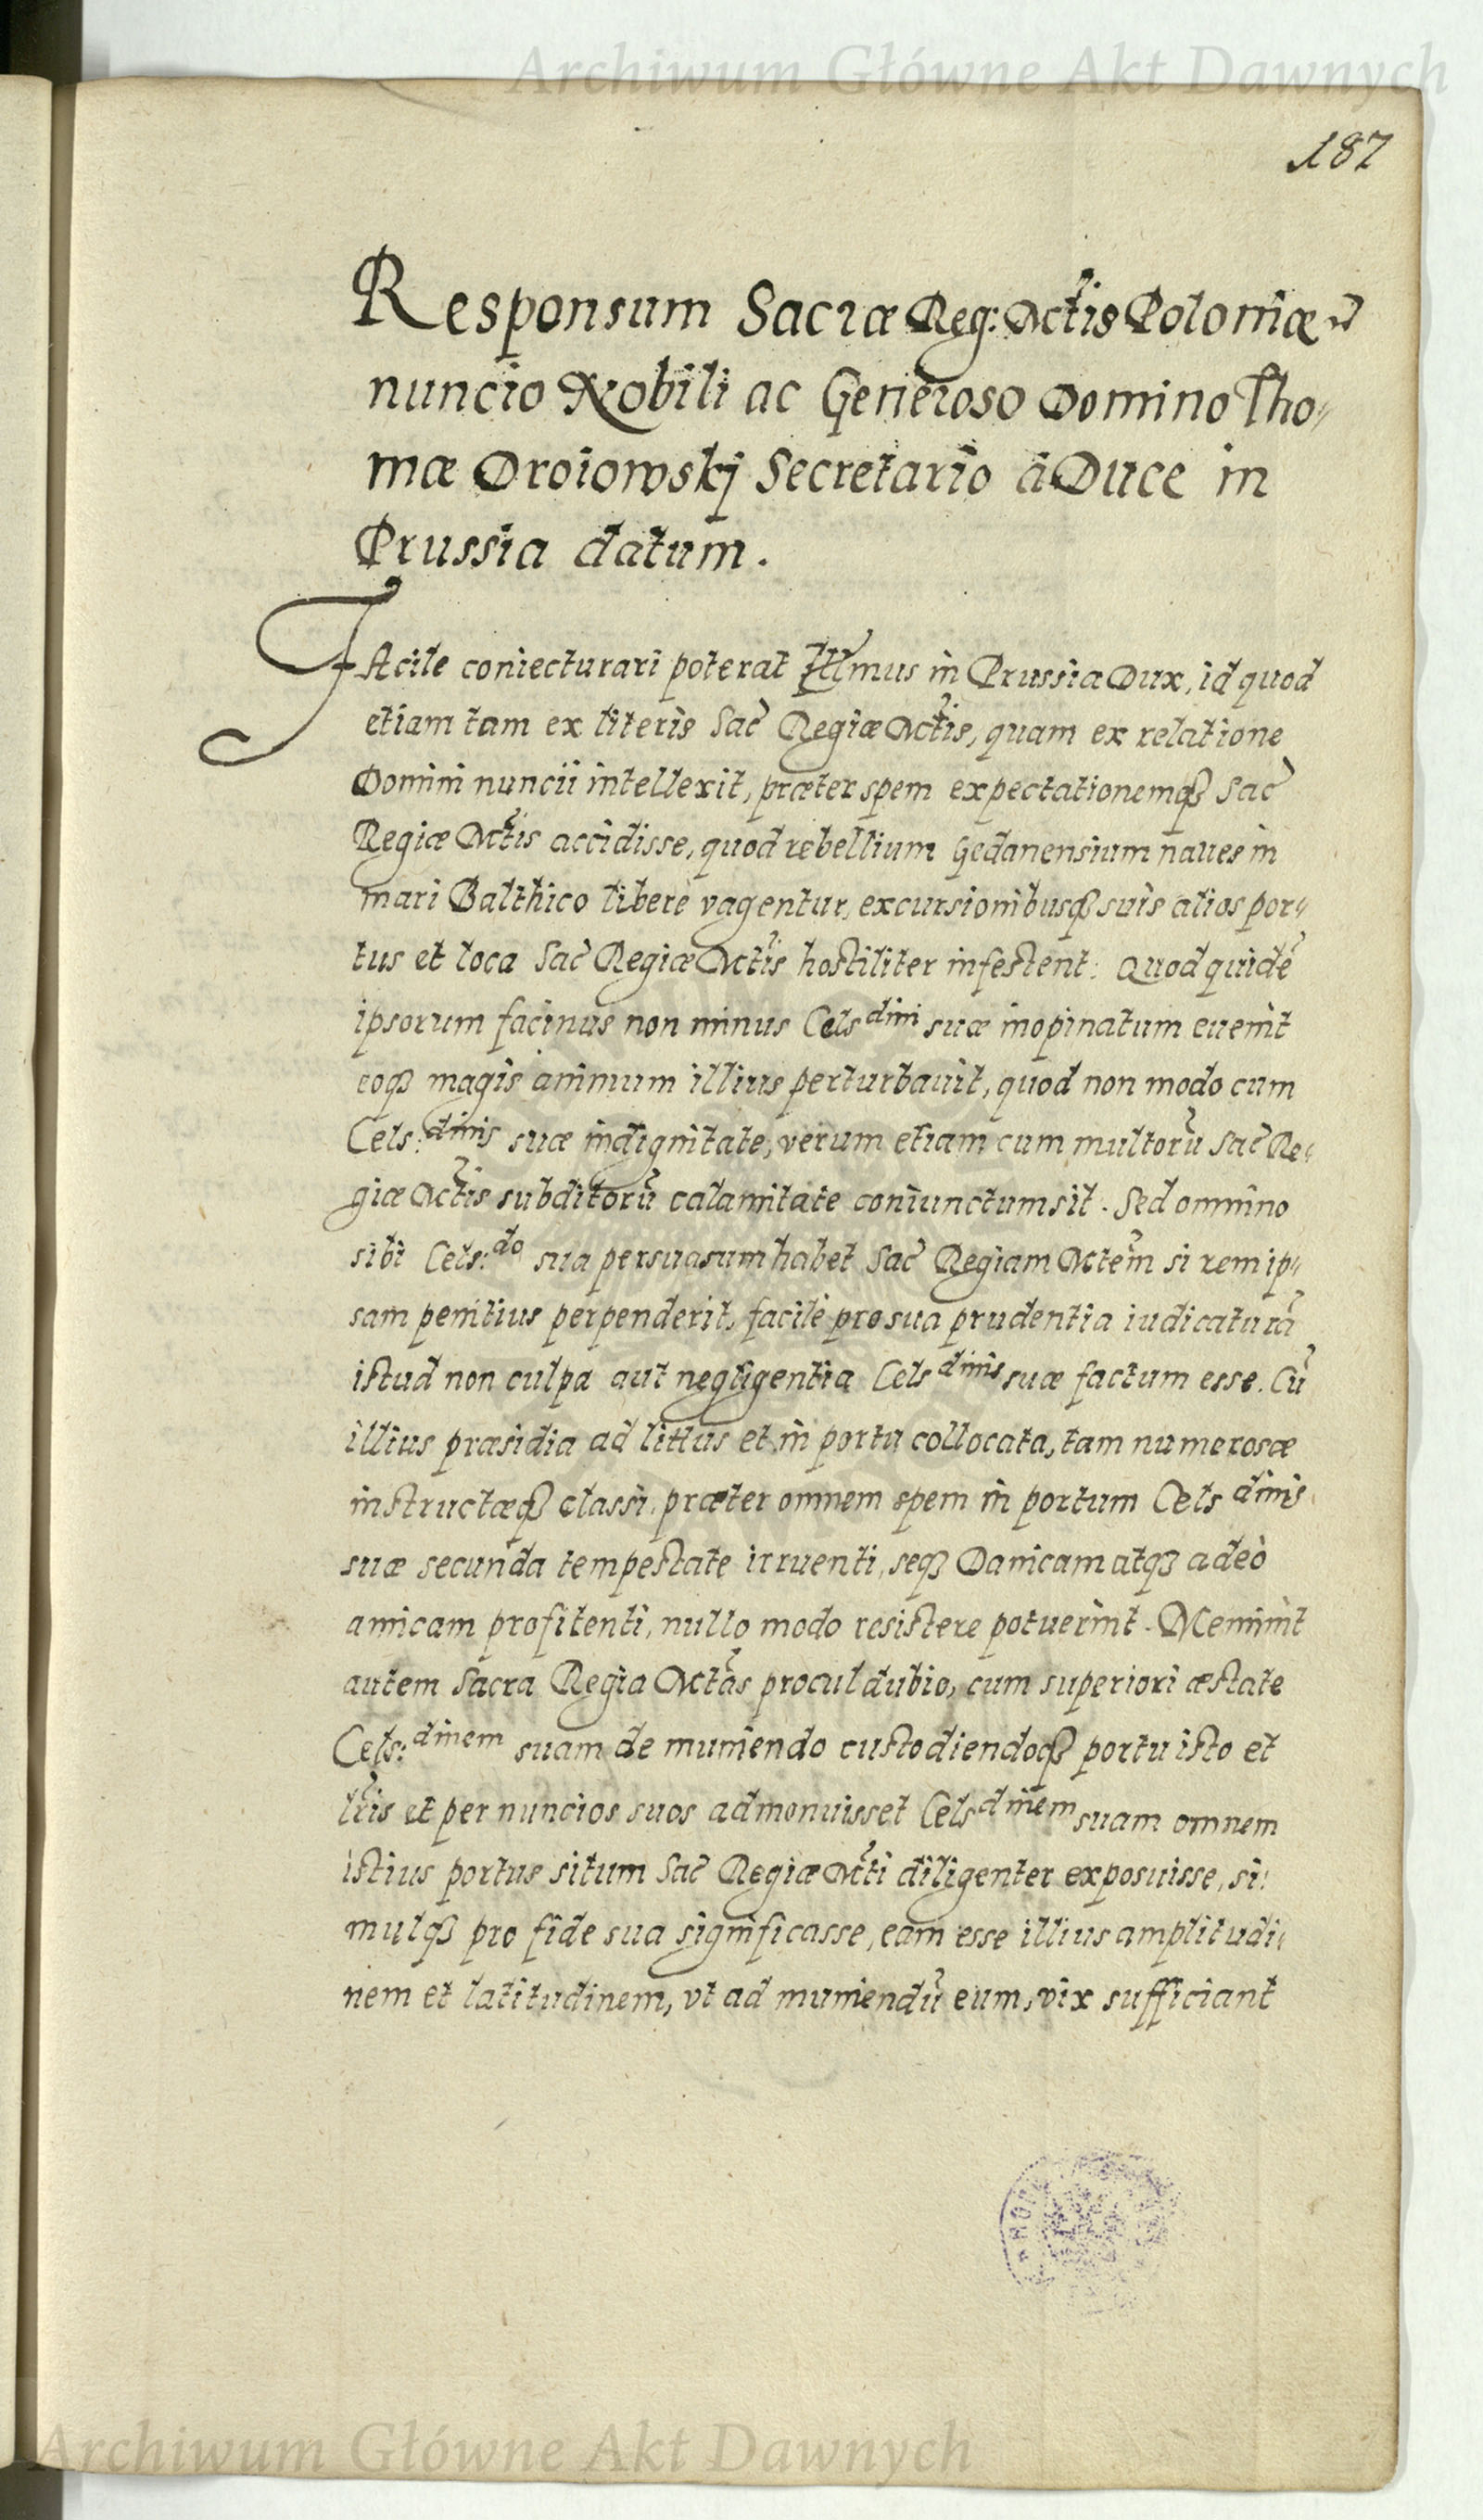 Archiwum Główne Akt Dawnych
187
Responsum Sacræ Reg: Mctis Poloniæ
nuncio Nobili ac Generoso Domino Tho-
mæ Droiowskj Secretario à Duce in
Prussia datum.
FAcile coniecturari poterat Illmus in Prussia Dux, id quod
etiam tam ex literis Sac Regiæ Mctis, quam ex relatione
Domini nuncii intellexit, præter spem expectationemqȝ Sac
Regiæ Mctis accidisse, quod rebellium Gedanensium naues in
mari Balthico liberè vagentur, excursionibusqȝ suis alios por-
tus et loca Sac Regiæ Mctis hostiliter infestent: Quod quidē
ipsorum facinus non minus Cels dini suæ inopinatum euenit
eoqȝ magis animum illius perturbauit, quod non modo cum
Cels: dinis suæ indignitate, verum etiam cum multorū Sac Re-
giæ Mctis subditorū calamitate coniunctum sit. Sed omnino
sibi Cels: do sua persuasum habet Sac Regiam Mctem si rem ip-
sam penitius perpenderit, facilè pro sua prudentia iudicaturā
istud non culpa aut negligentia Cels dinis suæ factum esse. Cū
illius præsidia ad littus et in portu collocata, tam numerosæ
instructæqȝ classi, præter omnem spem in portum Cels dinis
suæ secunda tempestate irruenti, seqȝ Danicam atqȝ adeò
amicam profitenti, nullo modo resistere potuerint. Meminit
autem Sacra Regia Mctas procul dubio, cum superiori æstate
Cels: dinem suam de muniendo custodiendoqȝ portu isto et
lris et per nuncios suos admonuisset Cels dinem suam omnem
istius portus situm Sac Regiæ Mcti diligenter exposuisse, si-
mulqȝ pro fide sua significasse, eam esse illius amplitudi-
nem et latitudinem, vt ad muniendū eum, vix sufficiant
Archiwum Główne Akt Dawnych